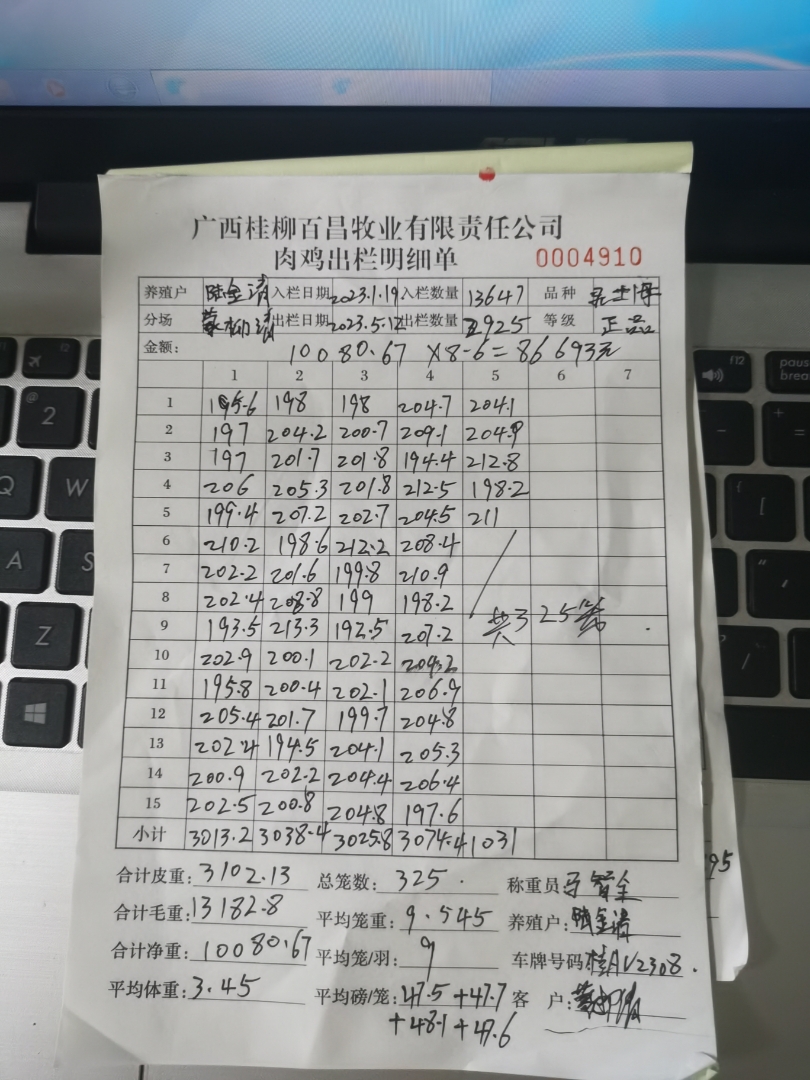 广西桂柳百昌牧业有限责任公司
肉鸡出栏明细单 0004910
养殖户 陆金清 入栏日期 2023.1.19 入栏数量 13647 品种
分场 出栏日期 2023.5.12 出栏数量 2925 等级 正品
金额: 10080.67 ×8-6=86693元
1 2 3 4 5 6 7
1 195.6 198 198 204.7 204.1
2 197 204.2 200.7 209.1 204.9
3 197 201.7 201.8 194.4 212.8
4 206 205.3 201.8 212.5 198.2
5 199.4 207.2 202.7 204.5 211
6 210.2 198.6 212.2 208.4
7 202.2 201.6 199.8 210.9
8 202.4 208.8 199 198.2
9 193.5 213.3 192.5 207.2 共325笼
10 202.9 200.1 202.2 204.2
11 195.8 200.4 202.1 206.9
12 205.4 201.7 199.7 204.8
13 202.4 194.5 204.1 205.3
14 200.9 202.2 204.4 206.4
15 202.5 200.8 204.8 197.6
小计 3013.2 3038.4 3025.8 3074.4 1031
合计皮重: 3102.13 总笼数: 325 称重员
合计毛重: 13182.8 平均笼重: 9.545 养殖户: 陆金清
合计净重: 10080.67 平均笼/羽: 9 车牌号码 桂AV2308
平均体重: 3.45 平均磅/笼: 47.5+47.7 客 户:
+48.1+47.6
95
F12
pause
brea
2
Q
W
A
S
Z